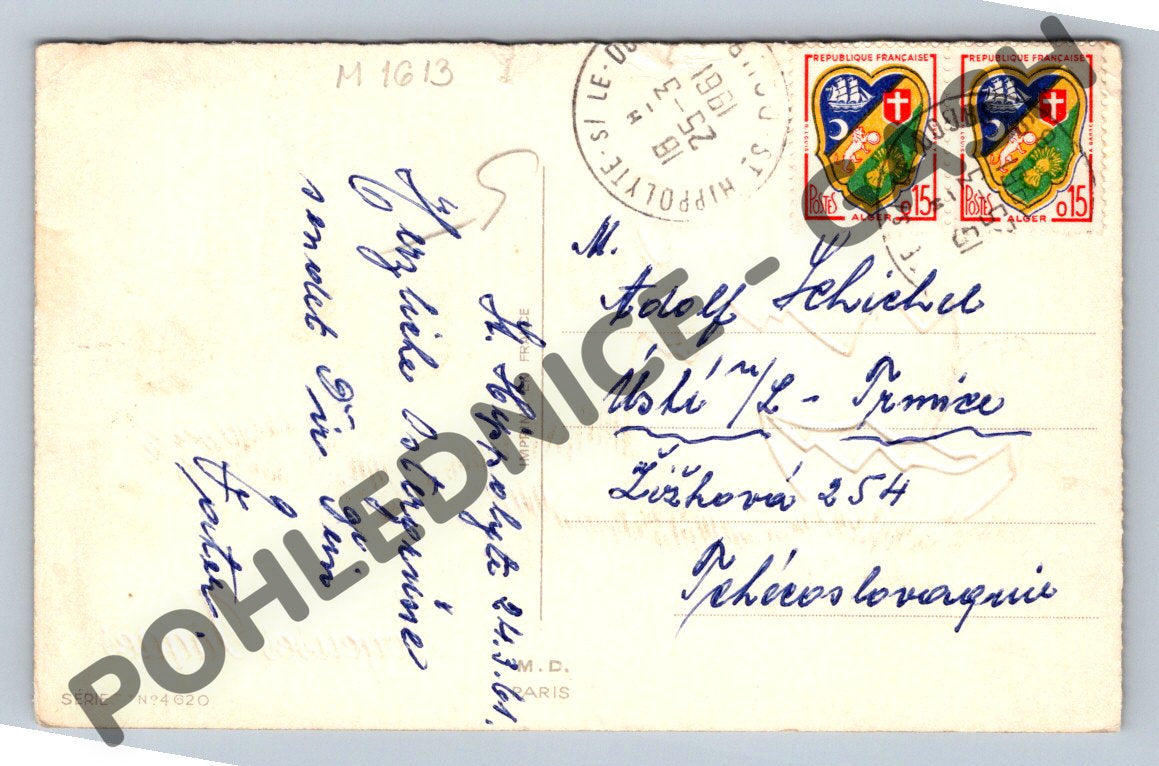 M 1613
St. Hippolyte 24.3.61.
Herzliche Ostergrüsse
sendet Dir
Vater.
M.
Adolf Schichel
Ústí n/L - Trmice
Žižková 254
Tchécoslovaquie
REPUBLIQUE FRANÇAISE
POSTES
ALGER
0,15
REPUBLIQUE FRANÇAISE
POSTES
ALGER
0,15
ST HIPPOLYTE-S/LE-DOUBS
18 H
25-3
1961
IMPRIMÉ EN FRANCE
M.D.
PARIS
SÉRIE N° 4620
POHLEDNICE -